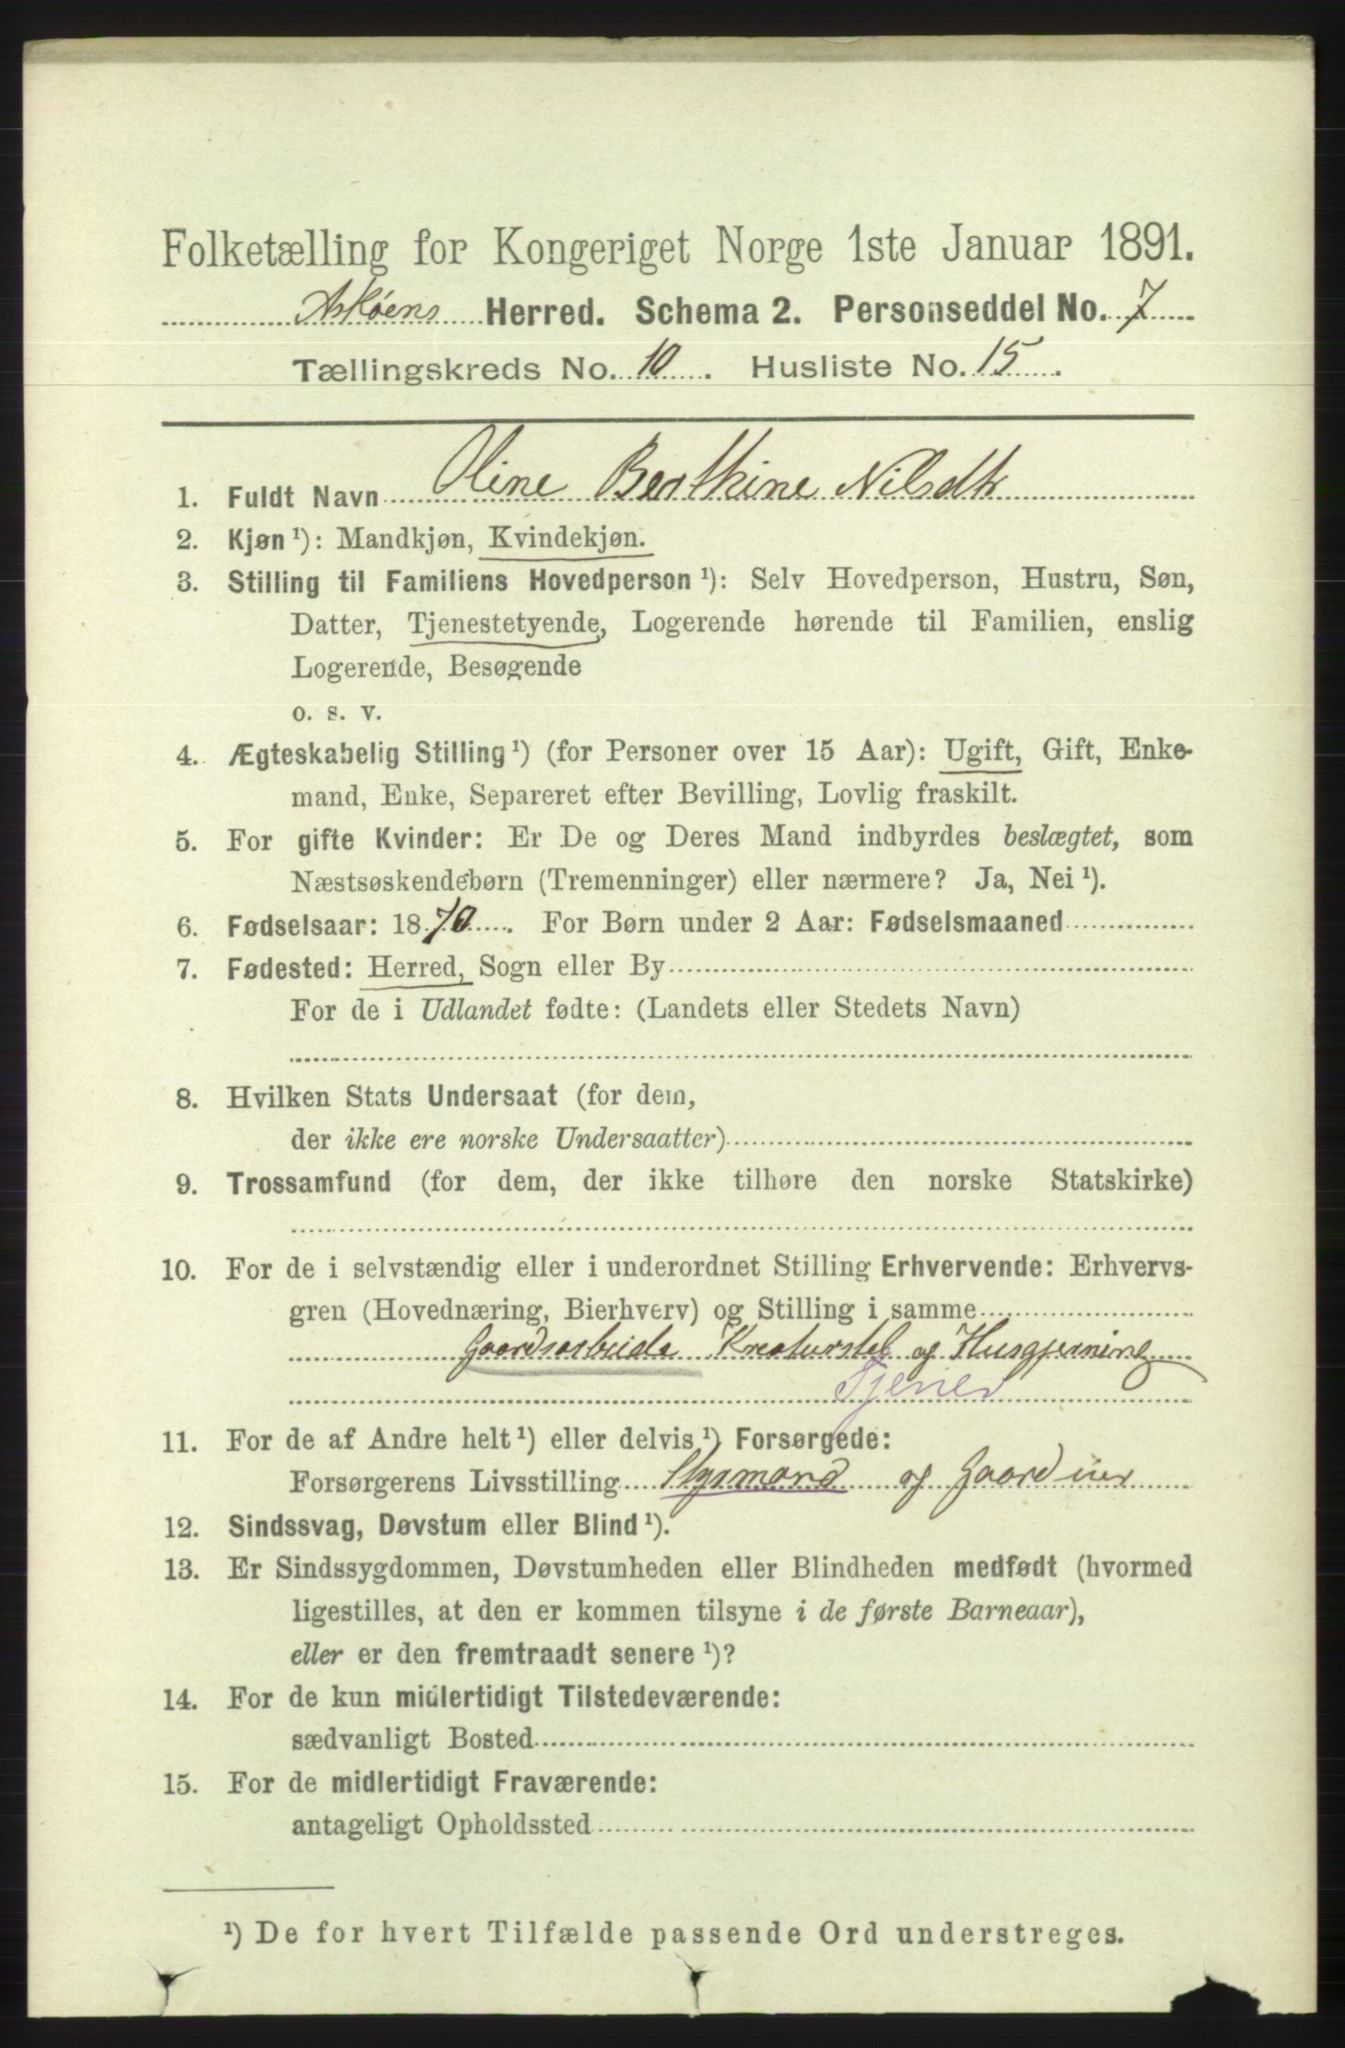 Folketælling for Kongeriget Norge 1ste Januar 1891.
Askøens Herred. Schema 2. Personseddel No. 7
Tællingskreds No. 10. Husliste No. 15.
1. Fuldt Navn Oline Berthine Nilsdtr
2. Kjøn ¹): Mandkjøn, Kvindekjøn.
3. Stilling til Familiens Hovedperson ¹): Selv Hovedperson, Hustru, Søn,
Datter, Tjenestetyende, Logerende hørende til Familien, enslig
Logerende, Besøgende
o. s. v.
4. Ægteskabelig Stilling ¹) (for Personer over 15 Aar): Ugift, Gift, Enke-
mand, Enke, Separeret efter Bevilling, Lovlig fraskilt.
5. For gifte Kvinder: Er De og Deres Mand indbyrdes beslægtet, som
Næstsøskendebørn (Tremenninger) eller nærmere? Ja, Nei ¹).
6. Fødselsaar: 1870. For Børn under 2 Aar: Fødselsmaaned
7. Fødested: Herred, Sogn eller By
For de i Udlandet fødte: (Landets eller Stedets Navn)
8. Hvilken Stats Undersaat (for dem,
der ikke ere norske Undersaatter)
9. Trossamfund (for dem, der ikke tilhøre den norske Statskirke)
10. For de i selvstændig eller i underordnet Stilling Erhvervende: Erhvervs-
gren (Hovednæring, Bierhverv) og Stilling i samme
Gaardsarbeide Kreaturstel og Husgjerning
Tjener
11. For de af Andre helt ¹) eller delvis ¹) Forsørgede:
Forsørgerens Livsstilling og Gaard
12. Sindssvag, Døvstum eller Blind ¹).
13. Er Sindssygdommen, Døvstumheden eller Blindheden medfødt (hvormed
ligestilles, at den er kommen tilsyne i de første Barneaar),
eller er den fremtraadt senere ¹)?
14. For de kun midlertidigt Tilstedeværende:
sædvanligt Bosted
15. For de midlertidigt Fraværende:
antageligt Opholdssted
¹) De for hvert Tilfælde passende Ord understreges.